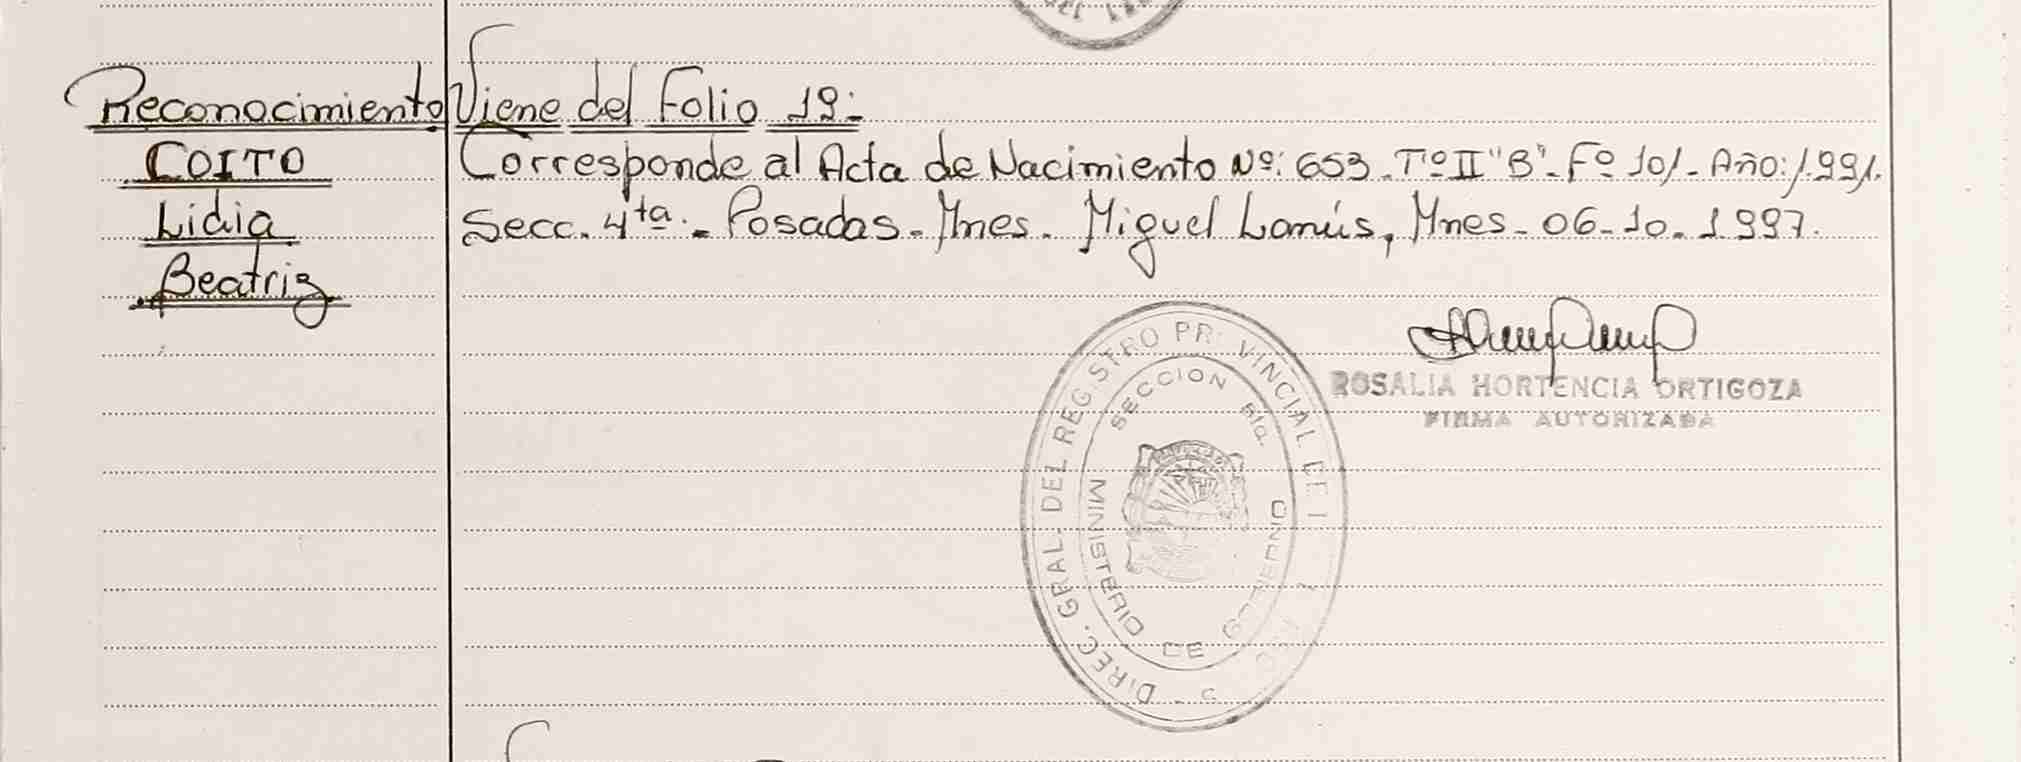 Reconocimiento
COITO
Lidia
Beatriz
Viene del Folio 19:
Corresponde al Acta de Nacimiento Nº: 653. Tº II "B". Fº 101. Año: 1.991.
Secc. 4ta. Posadas. Mnes. Miguel Lanús, Mnes. 06-10-1997.
ROSALIA HORTENCIA ORTIGOZA
FIRMA AUTORIZADA
DIREC. GRAL. DEL REGISTRO PR VINCIAL DE L
SECCION 8ta.
MINISTERIO DE GOBIERNO